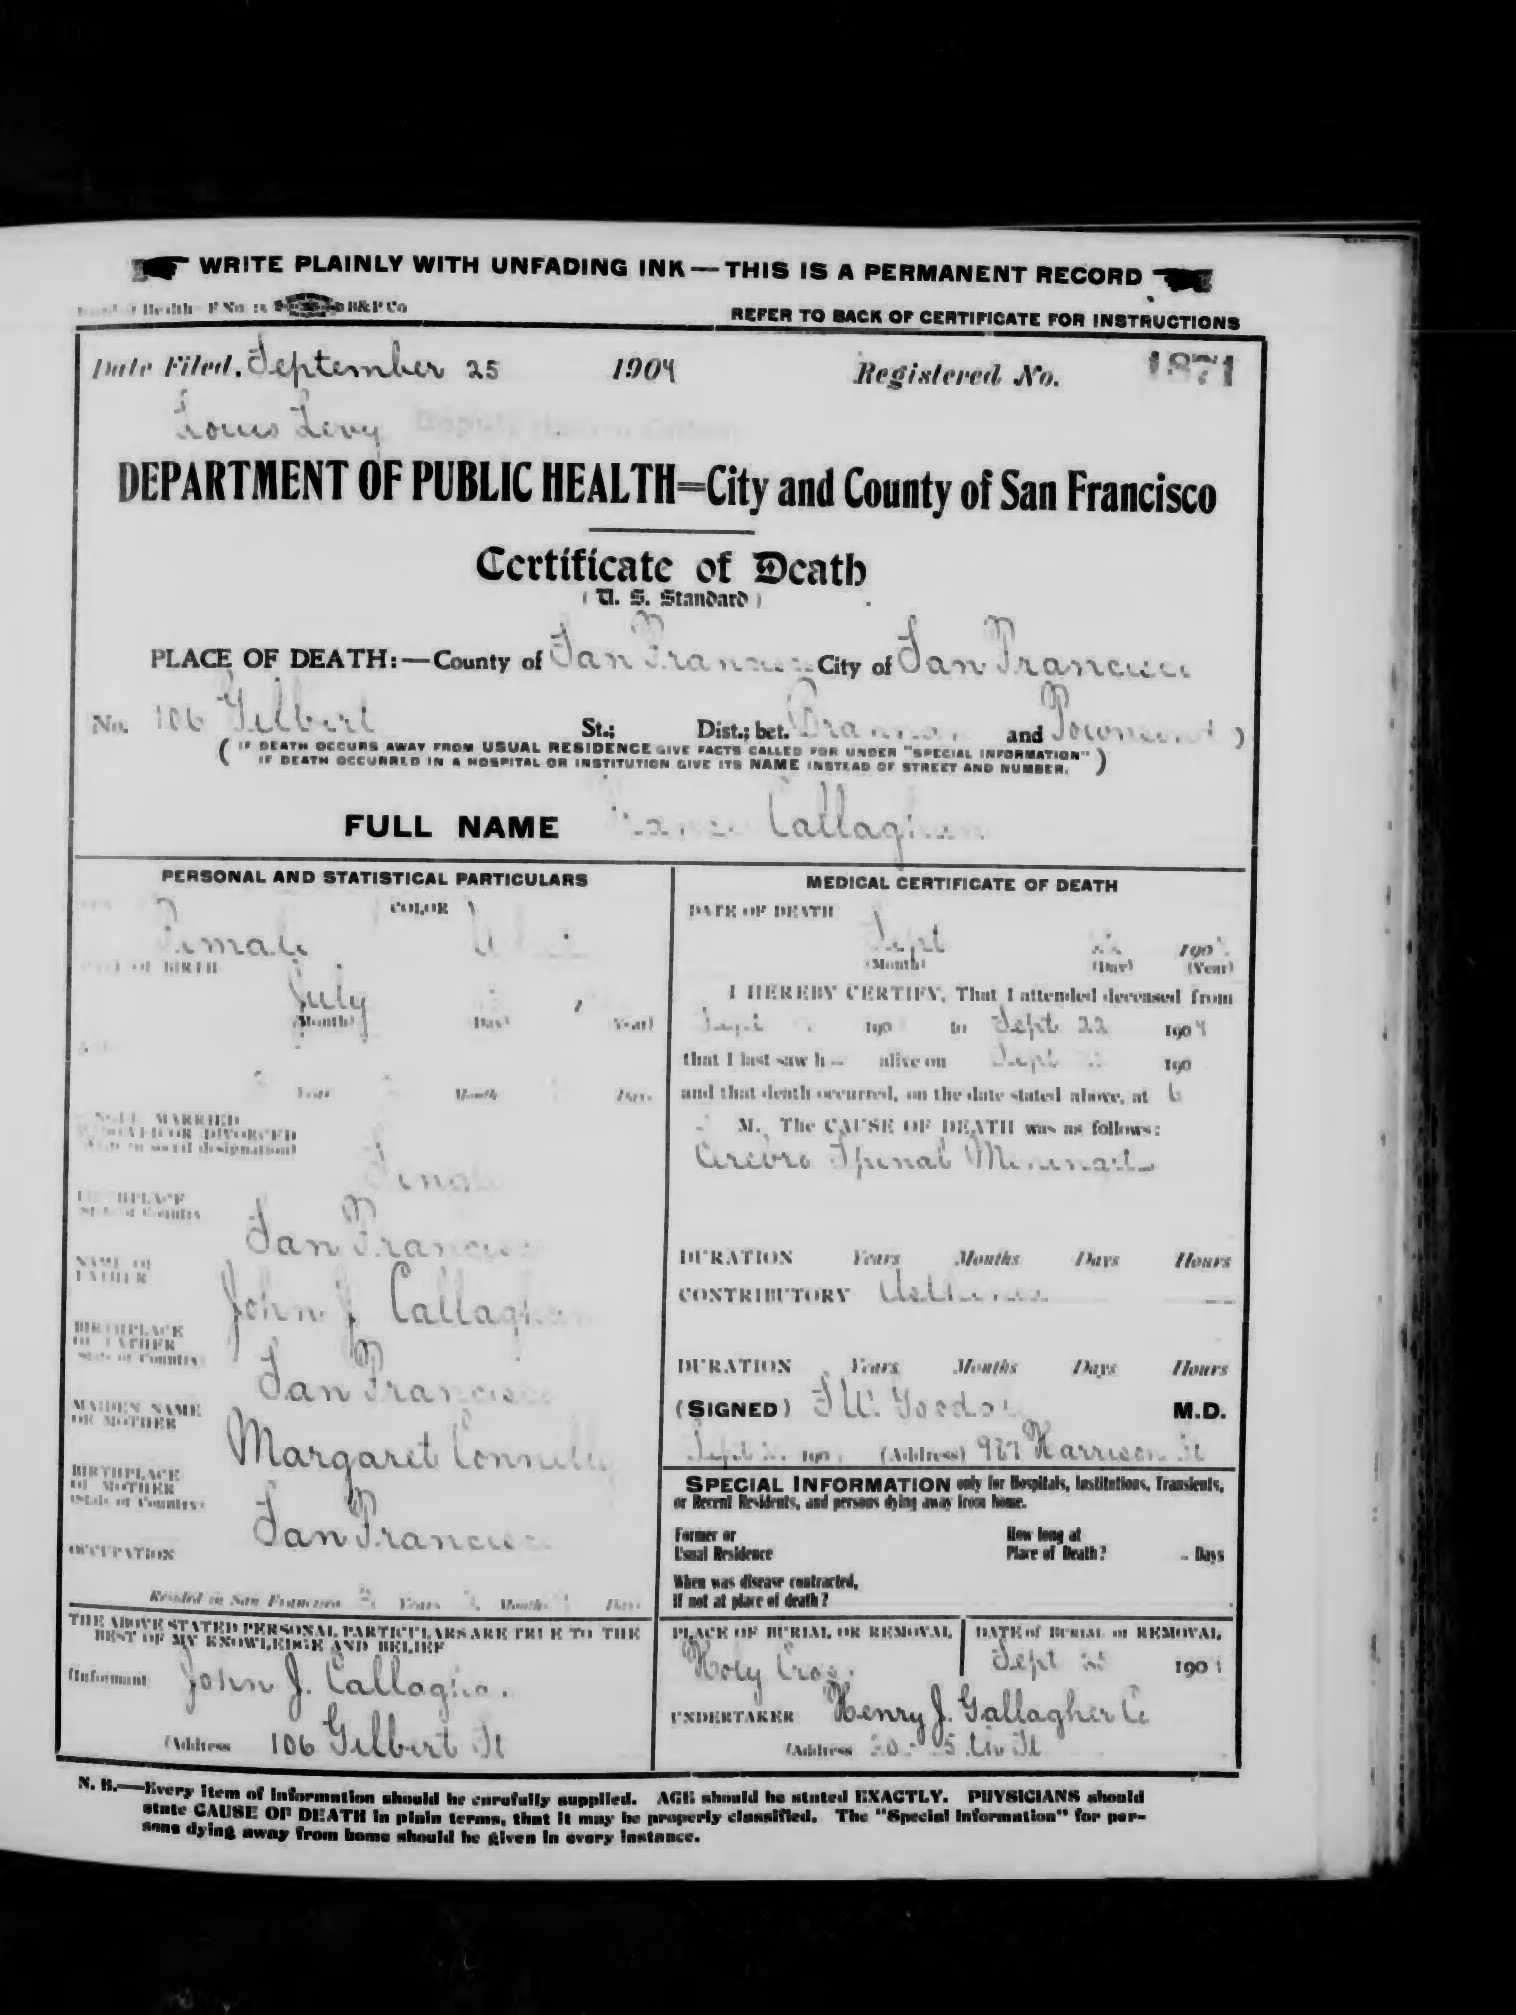 WRITE PLAINLY WITH UNFADING INK — THIS IS A PERMANENT RECORD
Health F No. B&P Co
REFER TO BACK OF CERTIFICATE FOR INSTRUCTIONS
Date Filed, September 25 1904 Registered No. 1871
Louis Levy
DEPARTMENT OF PUBLIC HEALTH=City and County of San Francisco
Certificate of Death
(U. S. Standard)
PLACE OF DEATH:—County of San Francisco City of San Francisco
No. 106 Gilbert St.; Dist.; bet. Brannan and Townsend )
( IF DEATH OCCURS AWAY FROM USUAL RESIDENCE GIVE FACTS CALLED FOR UNDER "SPECIAL INFORMATION" )
( IF DEATH OCCURRED IN A HOSPITAL OR INSTITUTION GIVE ITS NAME INSTEAD OF STREET AND NUMBER. )
FULL NAME Callaghan
PERSONAL AND STATISTICAL PARTICULARS
COLOR
Female
OF BIRTH
July
(Month) (Day) (Year)
Years Months Days
SINGLE, MARRIED
WIDOWED OR DIVORCED
(Write in social designation)
Single
BIRTHPLACE
State or Country
San Francisco
NAME OF
FATHER
John J Callaghan
BIRTHPLACE
OF FATHER
State or Country
San Francisco
MAIDEN NAME
OF MOTHER
Margaret Connelly
BIRTHPLACE
OF MOTHER
(State or Country)
San Francisco
OCCUPATION
Resided in San Francisco Years Months Days
THE ABOVE STATED PERSONAL PARTICULARS ARE TRUE TO THE
BEST OF MY KNOWLEDGE AND BELIEF
(Informant John J. Callaghan
(Address 106 Gilbert St
MEDICAL CERTIFICATE OF DEATH
DATE OF DEATH
Sept 190
(Month) (Day) (Year)
I HEREBY CERTIFY, That I attended deceased from
Sept 190 to Sept 22 1904
that I last saw h alive on Sept 190
and that death occurred, on the date stated above, at 6
M. The CAUSE OF DEATH was as follows:
Cerebro Spinal Meningitis
DURATION Years Months Days Hours
CONTRIBUTORY
DURATION Years Months Days Hours
(SIGNED) M.D.
Sept 190 (Address) 927 Harrison St
SPECIAL INFORMATION only for Hospitals, Institutions, Transients,
or Recent Residents, and persons dying away from home.
Former or
Usual Residence
How long at
Place of Death? Days
When was disease contracted,
If not at place of death?
PLACE OF BURIAL OR REMOVAL
Holy Cross
DATE of BURIAL or REMOVAL
Sept 190
UNDERTAKER Henry J. Gallagher Co
(Address St
N. B.—Every item of information should be carefully supplied. AGE should be stated EXACTLY. PHYSICIANS should
state CAUSE OF DEATH in plain terms, that it may be properly classified. The "Special Information" for per-
sons dying away from home should be given in every instance.